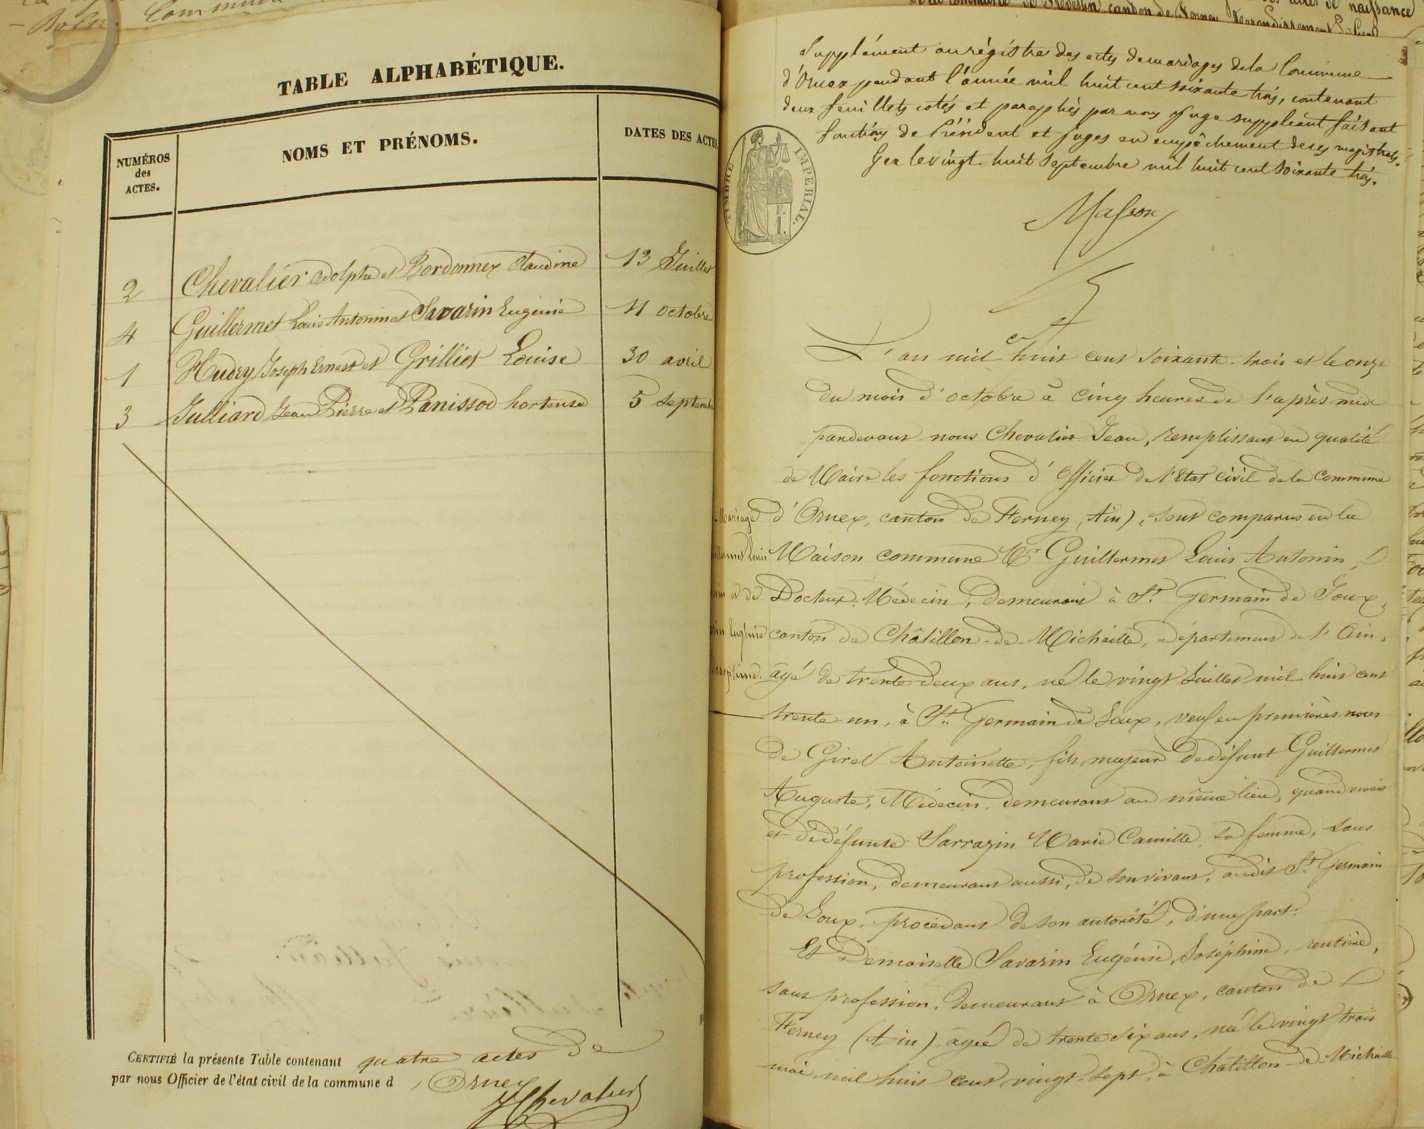 Commune
TABLE ALPHABÉTIQUE.
NUMÉROS
des
ACTES.
NOMS ET PRÉNOMS.
DATES DES ACTES
2 Chevalier adolphe et Bordonnex Claudine 13 Juillet
4 Guillermet Louis Antonin et Savarin Eugénie 11 octobre
1 Hudry Joseph Ernest et Grillier Louise 30 avril
3 Julliard Jean Pierre et Panissod hortense 5 septembre
CERTIFIÉ la présente Table contenant quatre actes de
par nous Officier de l'état civil de la commune d'Ornex
J Chevalier
de naissance
canton de Ferney
Supplément au régistre des actes de mariages de la Commune
d'Ornex pendant l'année mil huit cent soixante trois, contenant
deux feuillets cotés et paraphés par nous Juge suppléant faisant
fonctions de Président et Juges en empêchement de ces magistrats.
Gex le vingt-huit Septembre mil huit cent soixante trois.
TIMBRE IMPÉRIAL.
Masson
L'an mil huit cent soixante-trois et le onze
du mois d'octobre à cinq heures de l'après midi
pardevant nous Chevalier Jean, remplissant en qualité
de Maire les fonctions d'officier de l'Etat civil de la commune
Mariage
d'Ornex, canton de Ferney (Ain), sont comparus en la
Maison commune Mr Guillermet Louis Antonin,
Docteur-Médecin, demeurant à St Germain de Joux,
canton de Châtillon-de-Michaille, département de l'Ain,
âgé de trente deux ans, né le vingt Juillet mil huit cent
trente un, à St Germain de Joux, veuf en premières noces
de Girel Antoinette, fils majeur de défunt Guillermet
Auguste, Médecin, demeurant au même lieu, quand vivait
et de défunte Sarrazin Marie Camille sa femme, sans
profession, demeurant aussi, de son vivant, audit St Germain
de Joux, procédant de son autorité, d'une part.
Et Demoiselle Savarin Eugénie, Joséphine, rentière,
sans profession, demeurant à Ornex, canton de
Ferney (Ain) âgée de trente six ans, née le vingt trois
mai mil huit cent vingt-sept à Châtillon-de-Michaille